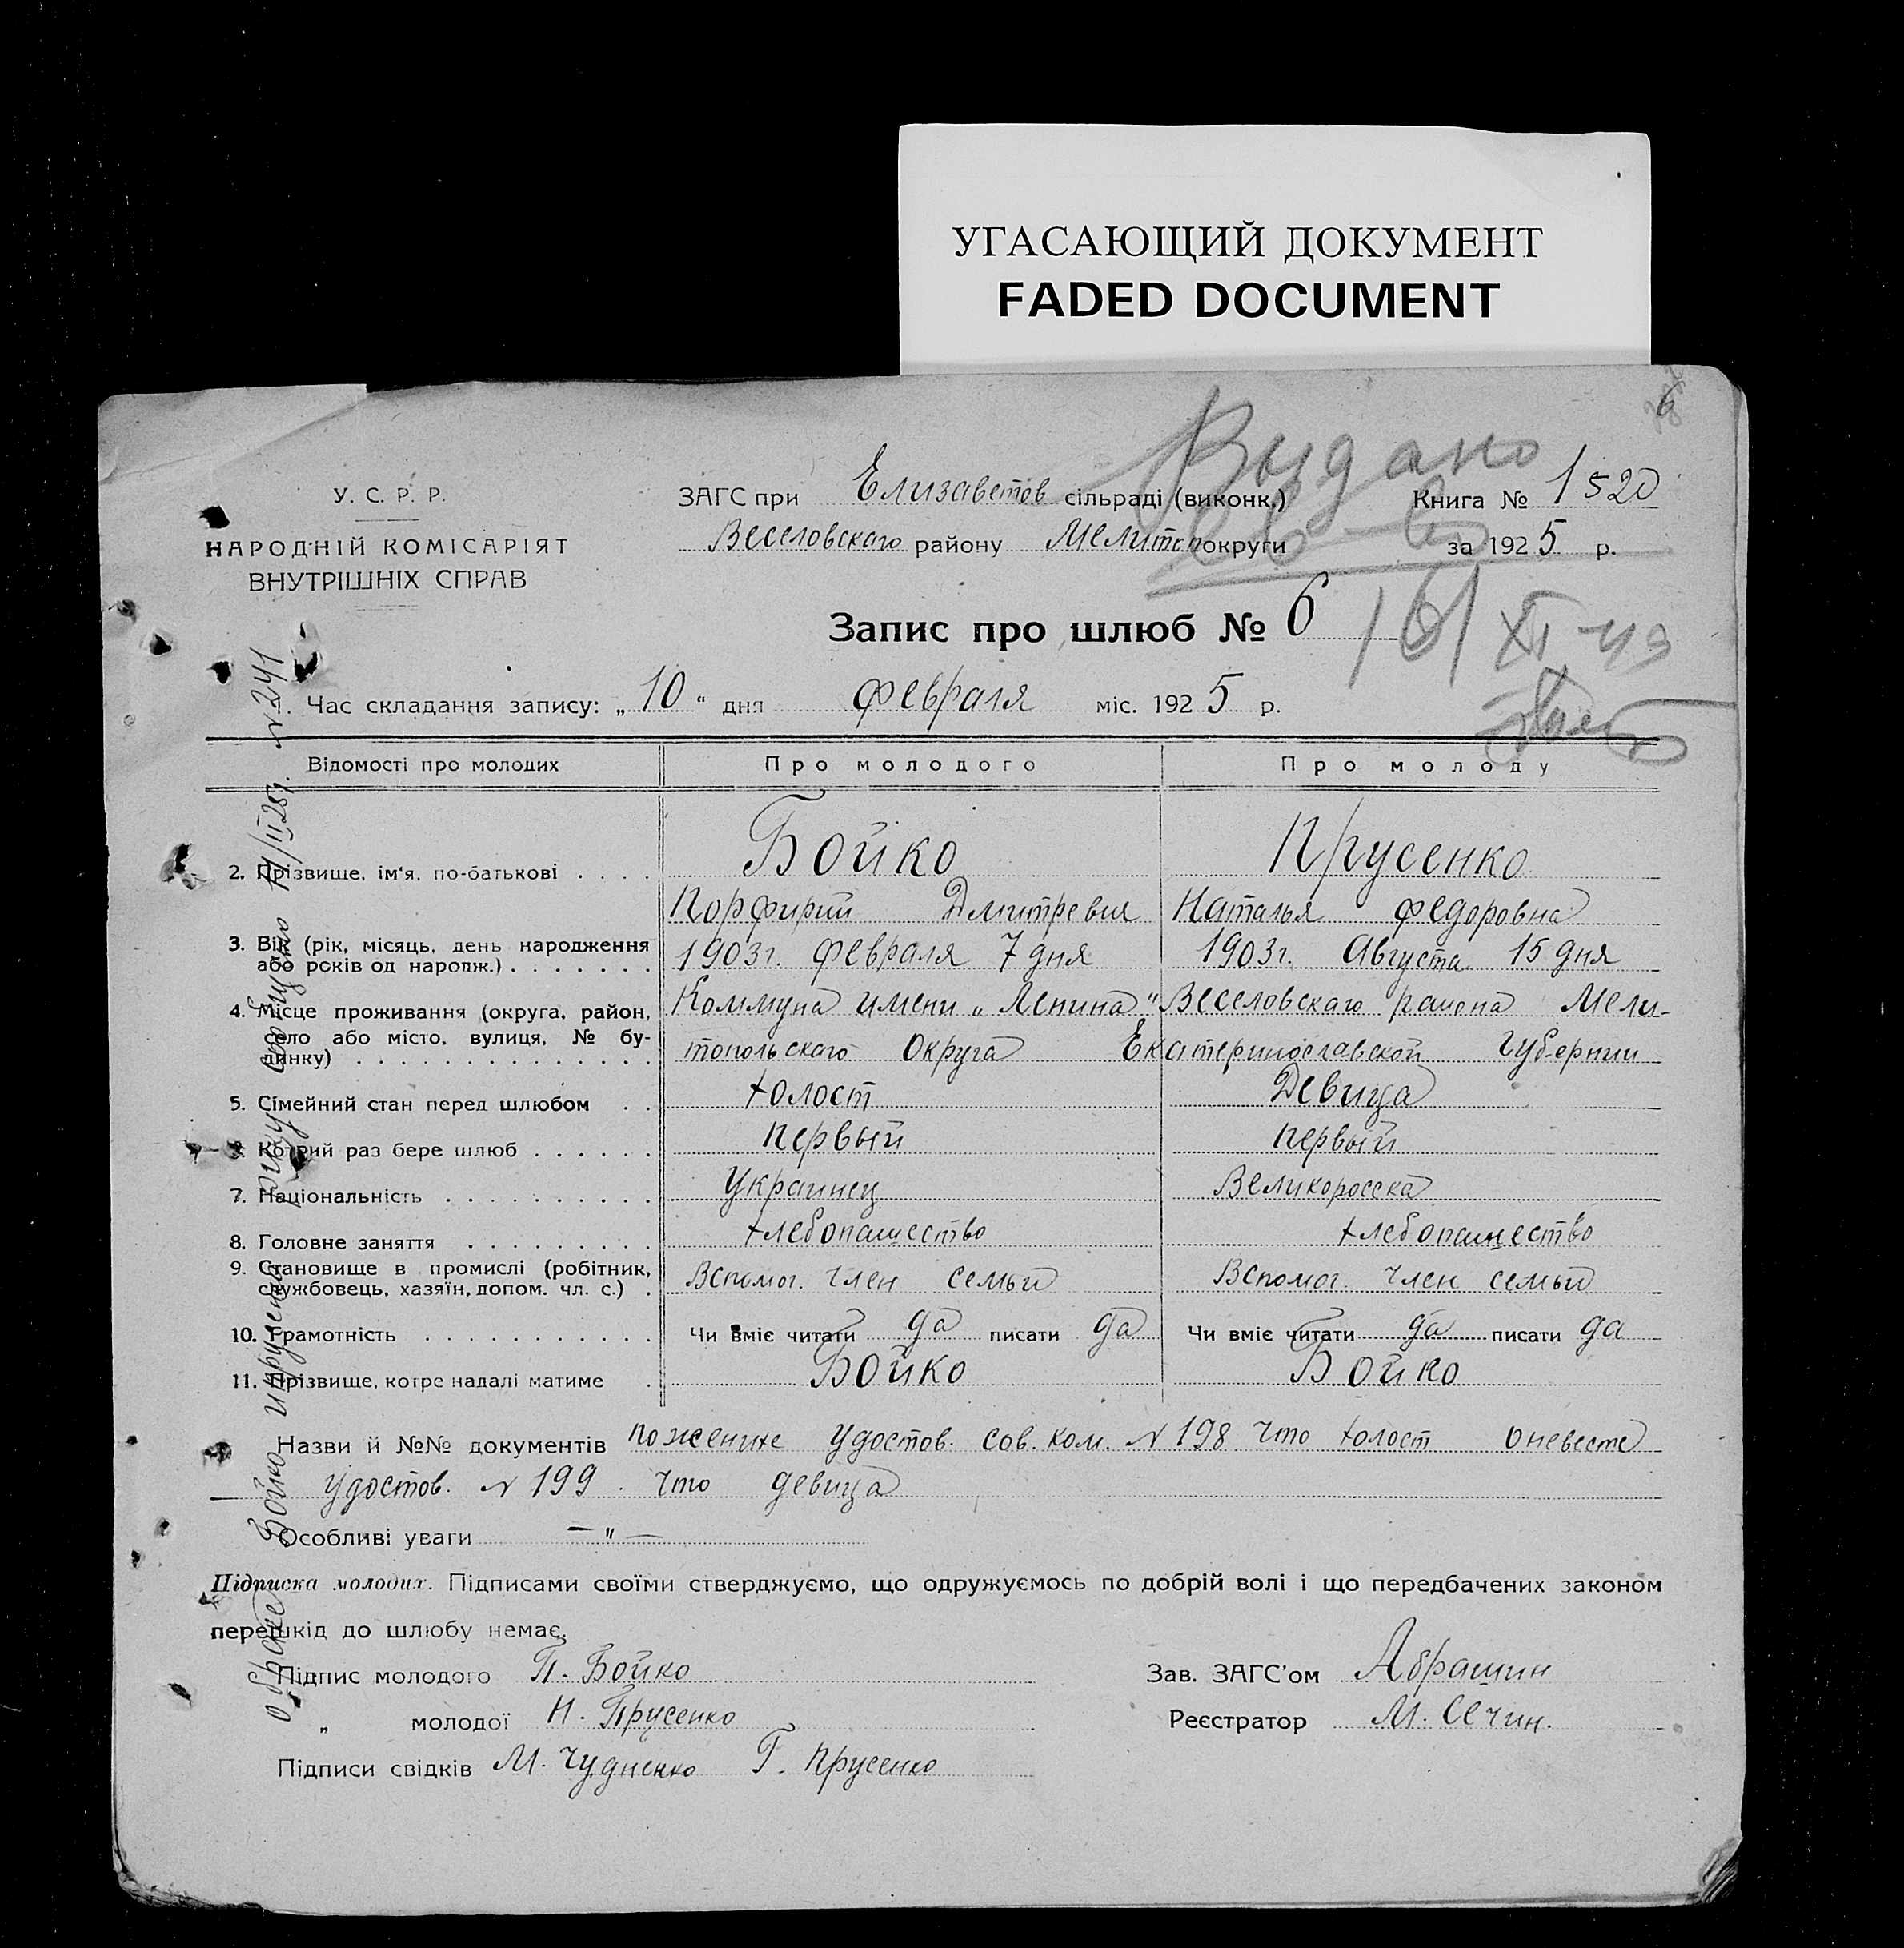 УГАСАЮЩИЙ ДОКУМЕНТ
FADED DOCUMENT
6
Выдано
св-во
16/XI-49
У. С. Р. Р.
НАРОДНІЙ КОМІСАРІЯТ
ВНУТРІШНІХ СПРАВ
ЗАГС при Елизаветов сільраді (виконк.) Книга № 1520
Веселовскаго району Мелитоп округи за 1925 р.
Запис про шлюб № 6
1. Час складання запису: „10“ дня февраля міс. 1925 р.
Відомості про молодих Про молодого Про молоду
Бойко Прусенко
2. Прізвище, ім'я, по-батькові . . . .
Порфирий Дмитревич Наталья Федоровна
3. Вік (рік, місяць, день народження
або років од народж.) . . . . . . . 1903г. февраля 7 дня 1903г. Августа 15 дня
4. Місце проживання (округа, район, Коммуна имени „Ленина" Веселовскаго района Мели-
село або місто, вулиця, № бу-
динку) . . . . . . . . . . . . . . топольскаго Округа Екатеринославской губернии
5. Сімейний стан перед шлюбом . . холост Девица
6. Котрий раз бере шлюб . . . . . . первый первый
7. Національність . . . . . . . . . . Украинец Великоросска
8. Головне заняття . . . . . . . . . хлебопашество хлебопашество
9. Становище в промислі (робітник,
службовець, хазяїн, допом. чл. с.) . Вспомог. член семьи Вспомог. член семьи
10. Грамотність . . . . . . . . . . . Чи вміє читати да писати да Чи вміє читати да писати да
11. Прізвище, котре надалі матиме . Бойко Бойко
Назви й №№ документів по женихе удостов. сов. ком. № 198 что холост о невесте
удостов. № 199. что девица
Особливі уваги — " —
Підписка молодих. Підписами своїми стверджуємо, що одружуємось по добрій волі і що передбачених законом
перешкід до шлюбу немає.
Підпис молодого П. Бойко Зав. ЗАГС'ом Абрашин
„ молодої Н. Прусенко Реєстратор М. Сечин.
Підписи свідків М. Чудненко Г. Прусенко
о браке Бойко и Прусенко 14/II 25г. № 241